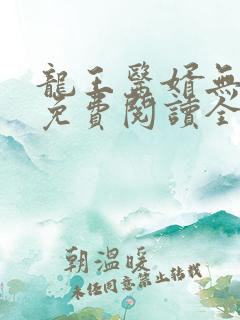 龍王醫婿無
免費閱讀全
朝溫暖
未經同意禁止轉載